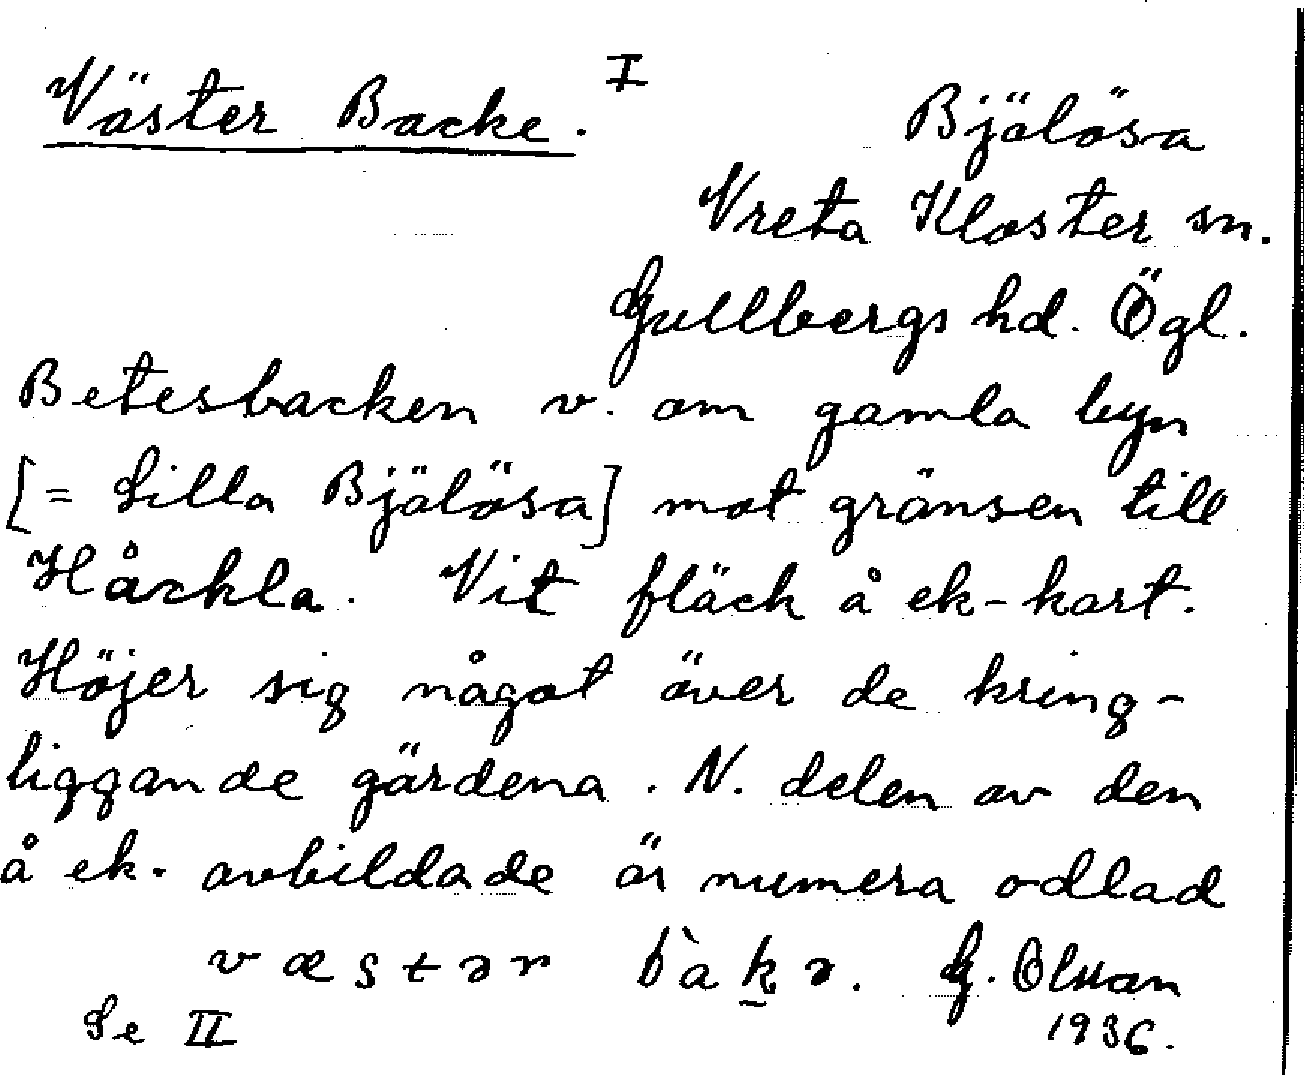 Väster Backe. I
Bjälösa
Vreta Kloster sn.
Gullbergs hd. Ögl.
Betesbacken v. om gamla byn
[= Lilla Bjälösa] mot gränsen till
Håckla. Vit fläck å ek-kart.
Höjer sig något över de kring-
liggande gärdena. N. delen av den
å ek. avbildade är numera odlad
væstər bàkə. G. Olsson
Se II
1936.